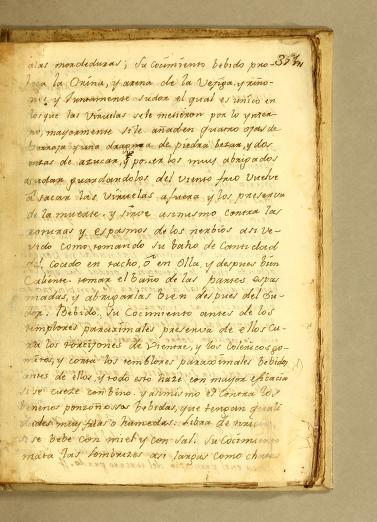 alas mordeduras; Su cocimiento bebido pro-
boca la Orina, y arena de la Vejiga, y riño-
nes, y Juntamente sudor el qual es unico en
los que las Viruelas se le metieron por lo ynter-
no, mayormente si le añaden quatro ojas de
borraja y una dragma de piedra bezar, y dos
onzas de azucar, y ponerlos muy abrigados
a sudar guardandolos del viento frio Vuelve
a sacar las Viruelas afuera, y los preserva
de la muerte, y sirve asimismo contra las
roturas y espasmos de los nerbios asi ve-
vido como tomando su baho de Cantidad
del, Cocido en tacho, ó en Olla, y despues bien
Caliente tomar el baño de las partes espas
madas, y abrigarlas bien despues del Su-
dor. Bebido, Su Cocimiento antes de los
temblores paraximales preserva de ellos Cu-
ra los torcijones de Vientre, y los Colericos vo-
mitos, y corta los temblores paraximales bebido,
antes de ellos, y todo esto haze con mayor eficacia
si se cueze con bino. y asimismo es Contra los
benenos ponzoñosos bebidos, que tengan quali
dades muy frias o humedas.
si se bebe con miel y con sal. Su Cocimiento
mata las lombrizes asi largas como